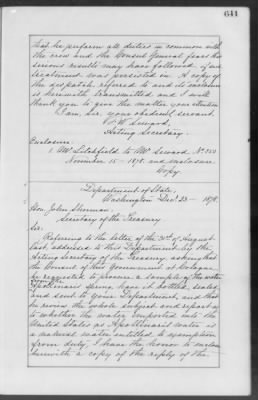 641
that he perform all duties in common with
the crew and the Consul General fears has
serious results may have followed if such
treatment was persisted in. A copy of
the despatch referred to and its enclosure
is herewith transmitted and I will
thank you to give the matter your attention
I am, sir, your obedient servant
F. W. Seward,
Acting Secretary.
Enclosure:
1. Mr. Litchfield to Mr. Seward, No.
November 15 - 1878. and enclosure.
Copy
Department of State,
Washington Dec. 23 - 1878.
Hon. John Sherman,
Secretary of the Treasury
Sir:
Referring to the letter of the 30th of August
last, addressed to this Department by the
Acting Secretary of the Treasury, asking that
the Consul of this Government at Cologne
be requested to procure a sample of the water
Apollinaris spring, have it bottled, sealed
and sent to your Department, and that
he review the whole subject and report as
to whether the water imported into the
United States as Apollinaris water is
a natural water entitled to exemption
from duty, I have the honor to enclose
herewith a copy of the reply of the